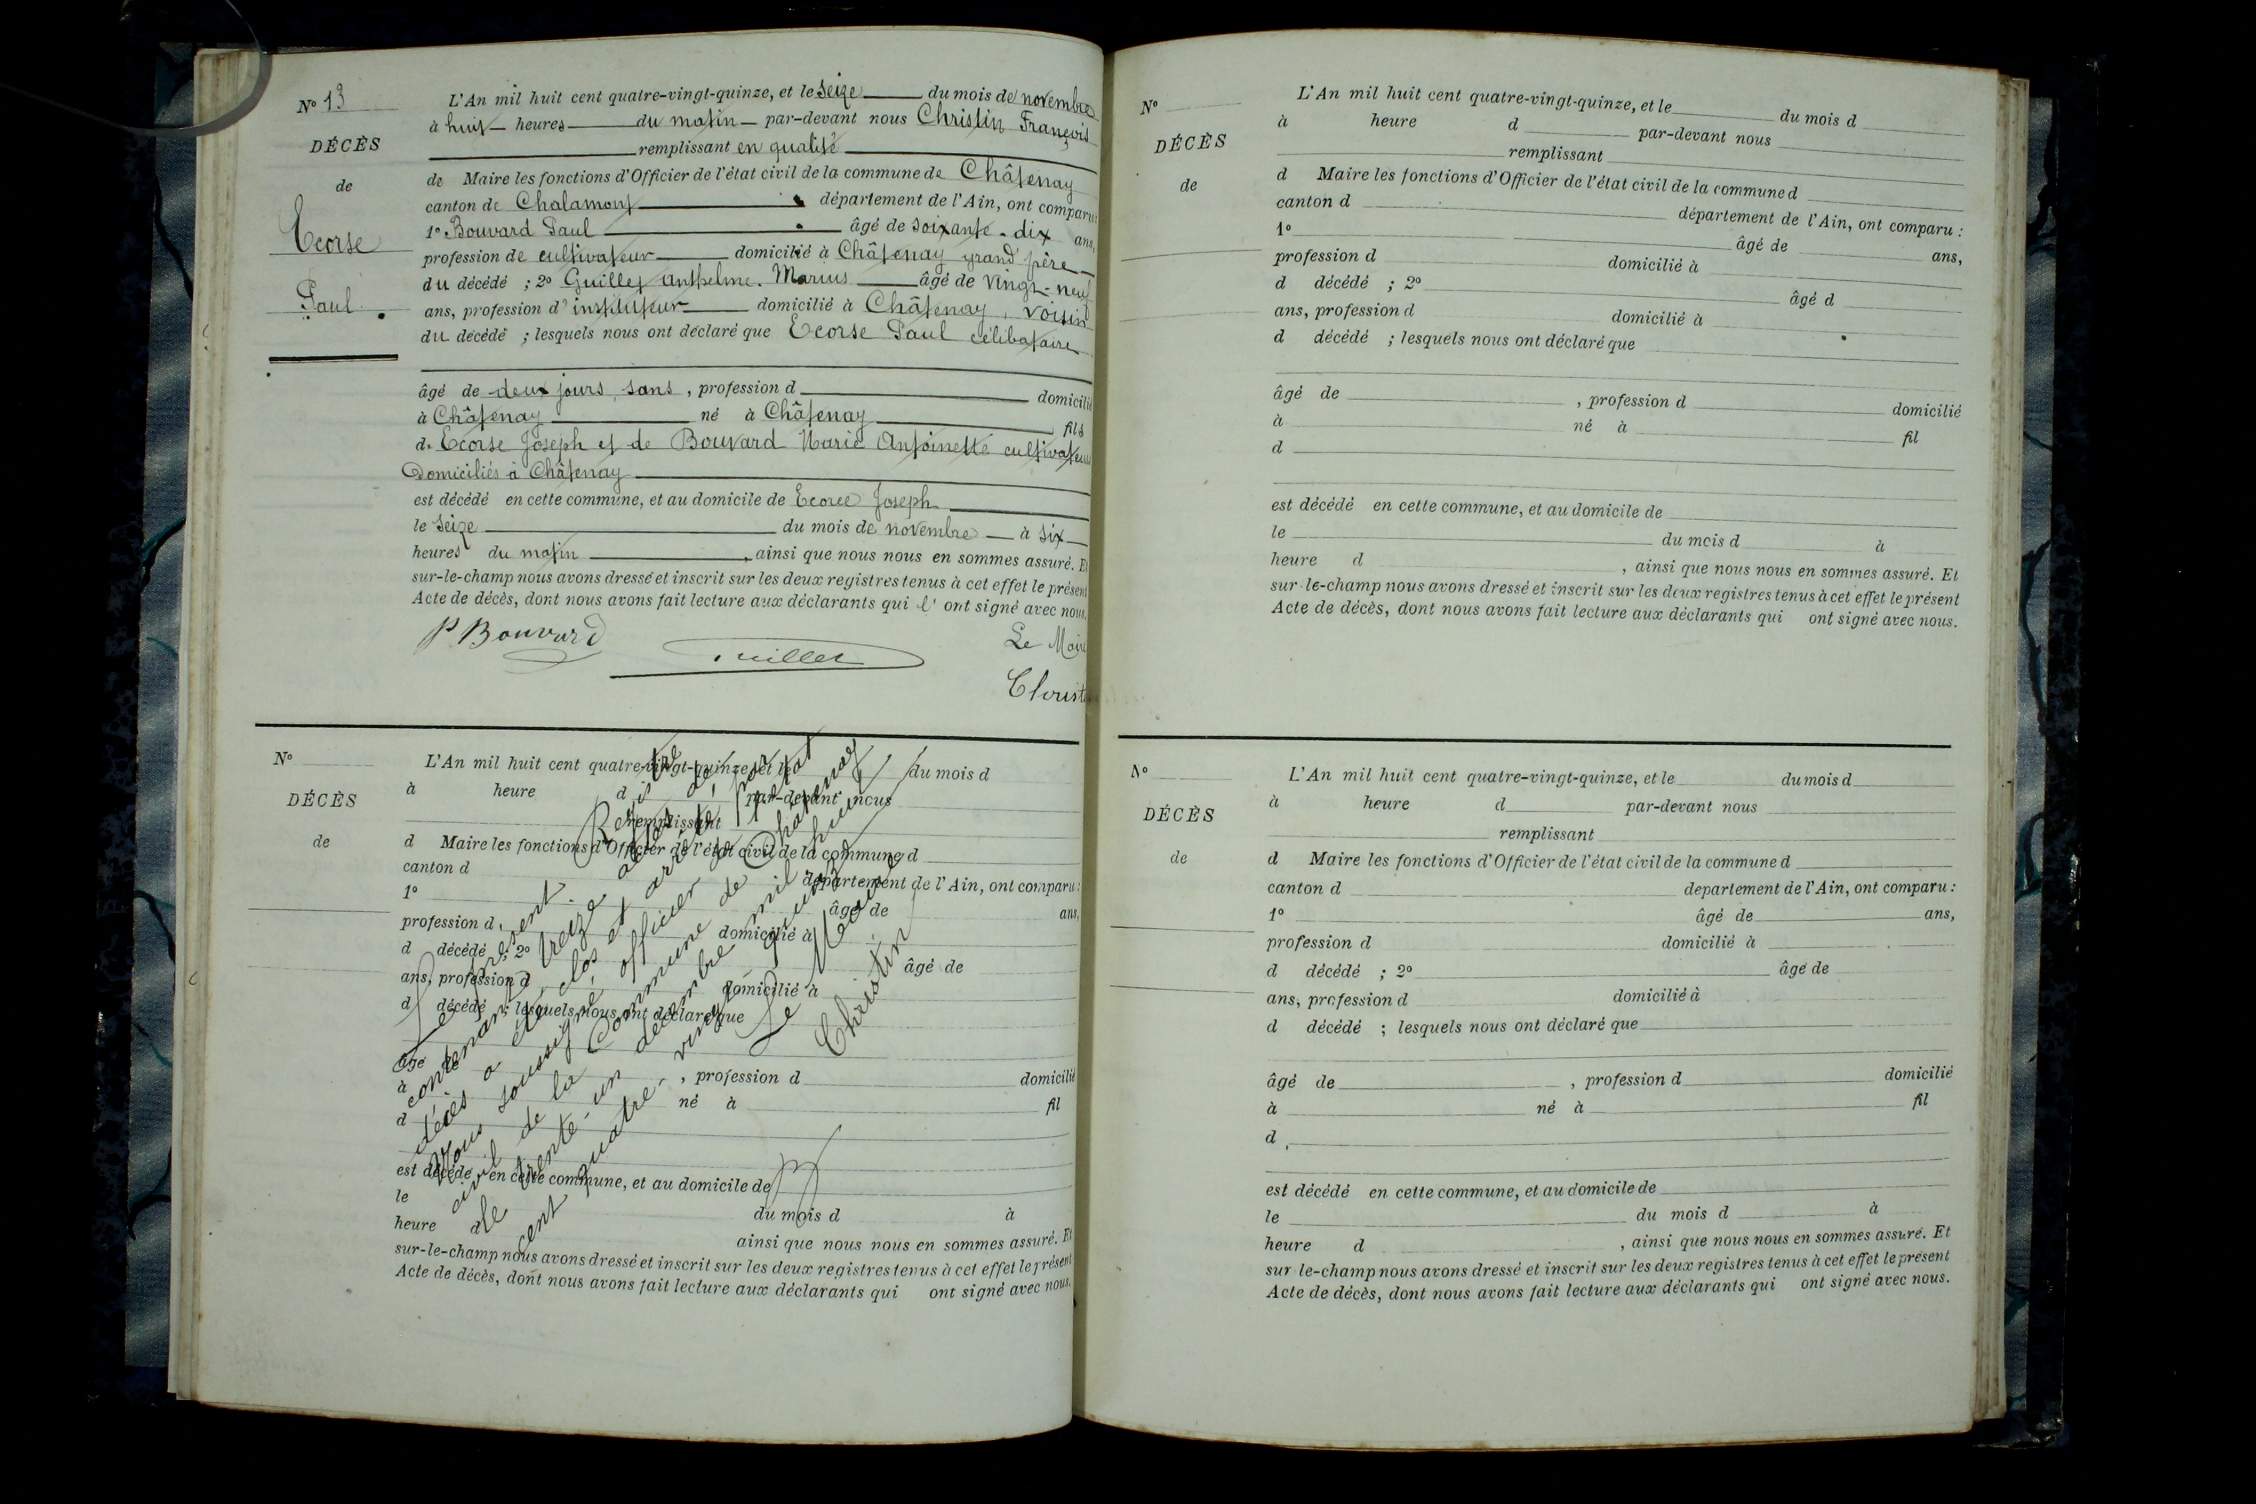 N° 13
DÉCÈS
de
Ecorse
Paul
L'An mil huit cent quatre-vingt-quinze, et le seize du mois de novembre
à huit heures du matin par-devant nous Christin François
remplissant en qualité
de Maire les fonctions d'Officier de l'état civil de la commune de Châtenay
canton de Chalamont département de l'Ain, ont comparu:
1° Bouvard Paul âgé de soixante-dix ans,
profession de cultivateur domicilié à Châtenay grand père
du décédé ; 2° Guillet Anthelme Marius âgé de vingt-neuf
ans, profession d'instituteur domicilié à Châtenay, voisin
du décédé ; lesquels nous ont déclaré que Ecorse Paul célibataire
âgé de deux jours, sans, profession d domicilié
à Châtenay né à Châtenay fils
de Ecorse Joseph et de Bouvard Marie Antoinette cultivateurs
Domiciliés à Châtenay
est décédé en cette commune, et au domicile de Ecorce Joseph
le seize du mois de novembre à six
heures du matin, ainsi que nous nous en sommes assuré. Et
sur-le-champ nous avons dressé et inscrit sur les deux registres tenus à cet effet le présent
Acte de décès, dont nous avons fait lecture aux déclarants qui l'ont signé avec nous.
P Bouvard
Guillet
Le Maire
Christin
N°
DÉCÈS
de
L'An mil huit cent quatre-vingt-quinze, et le du mois d
à heure d par-devant nous
remplissant
d Maire les fonctions d'Officier de l'état civil de la commune d
canton d département de l'Ain, ont comparu:
1° âgé de ans,
profession d domicilié à
d décédé ; 2° âgé de
ans, profession d domicilié à
d décédé ; lesquels nous ont déclaré que
âgé de , profession d domicilié
à né à fil
d
est décédé en cette commune, et au domicile de
le du mois d à
heure d ainsi que nous nous en sommes assuré. Et
sur-le-champ nous avons dressé et inscrit sur les deux registres tenus à cet effet le présent
Acte de décès, dont nous avons fait lecture aux déclarants qui ont signé avec nous.
Le présent Registre
contenant treize actes de
décès a été clos et arrêté par
Nous soussigné officier de l'état
civil de la Commune de Chatenay
le trente-un décembre mil huit
cent quatre-vingt-quinze
Le Maire
Christin
N°
DÉCÈS
de
L'An mil huit cent quatre-vingt-quinze, et le du mois d
à heure d par-devant nous
remplissant
d Maire les fonctions d'Officier de l'état civil de la commune d
canton d département de l'Ain, ont comparu :
1° âgé de ans,
profession d domicilié à
d décédé ; 2° âgé d
ans, profession d domicilié à
d décédé ; lesquels nous ont déclaré que
âgé de , profession d domicilié
à né à fil
d
est décédé en cette commune, et au domicile de
le du mois d à
heure d , ainsi que nous nous en sommes assuré. Et
sur-le-champ nous avons dressé et inscrit sur les deux registres tenus à cet effet le présent
Acte de décès, dont nous avons fait lecture aux déclarants qui ont signé avec nous.
N°
DÉCÈS
de
L'An mil huit cent quatre-vingt-quinze, et le du mois d
à heure d par-devant nous
remplissant
d Maire les fonctions d'Officier de l'état civil de la commune d
canton d departement de l'Ain, ont comparu :
1° âgé de ans,
profession d domicilié à
d décédé ; 2° âge de
ans, profession d domicilié à
d décédé ; lesquels nous ont déclaré que
âgé de , profession d domicilié
à né à fil
d
est décédé en cette commune, et au domicile de
le du mois d à
heure d , ainsi que nous nous en sommes assuré. Et
sur le-champ nous avons dressé et inscrit sur les deux registres tenus à cet effet le présent
Acte de décès, dont nous avons fait lecture aux déclarants qui ont signé avec nous.